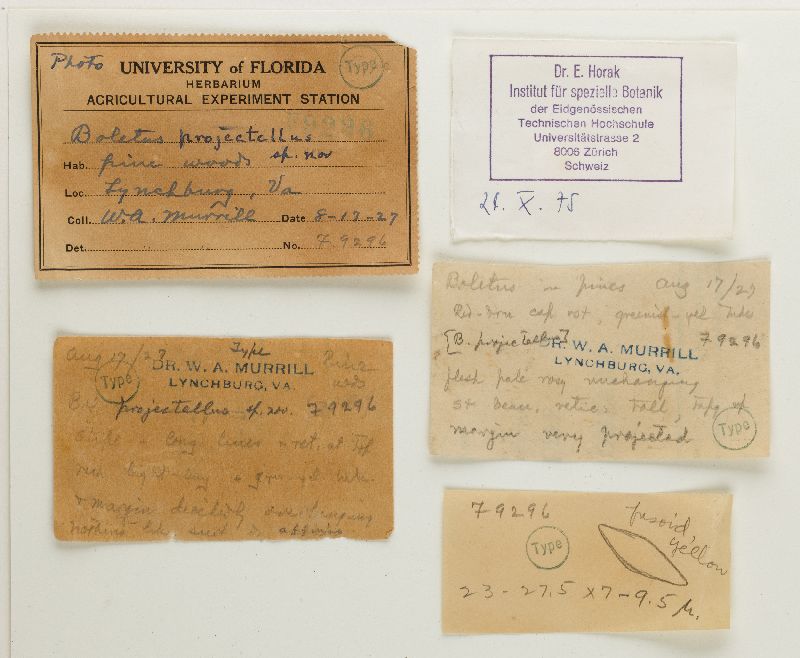 Photo
UNIVERSITY of FLORIDA
Type
HERBARIUM
AGRICULTURAL EXPERIMENT STATION
79296
Boletus projectellus
Hab. pine woods sp. nov
Loc. Lynchburg, Va
Coll. W.A. Murrill Date 8-17-27
Det. No. 79296
Dr. E. Horak
Institut für spezielle Botanik
der Eidgenössischen
Technischen Hochschule
Universitätstrasse 2
8006 Zürich
Schweiz
28. X. 75
Boletus in pines Aug 17/27
cap greenish-yel tubes
[B. projectellus] 79296
DR. W. A. MURRILL
LYNCHBURG, VA.
flesh pale rosy unchanging
tall,
margin very projected
Type
Aug 17/27 Type Pine
DR. W. A. MURRILL
LYNCHBURG, VA.
Type
projectellus sp. nov. 79296
long lines ret. at top
& margin overhanging
nothing like such affinis
79296
fusoid
yellow
Type
23-27.5 x 7-9.5 µ.